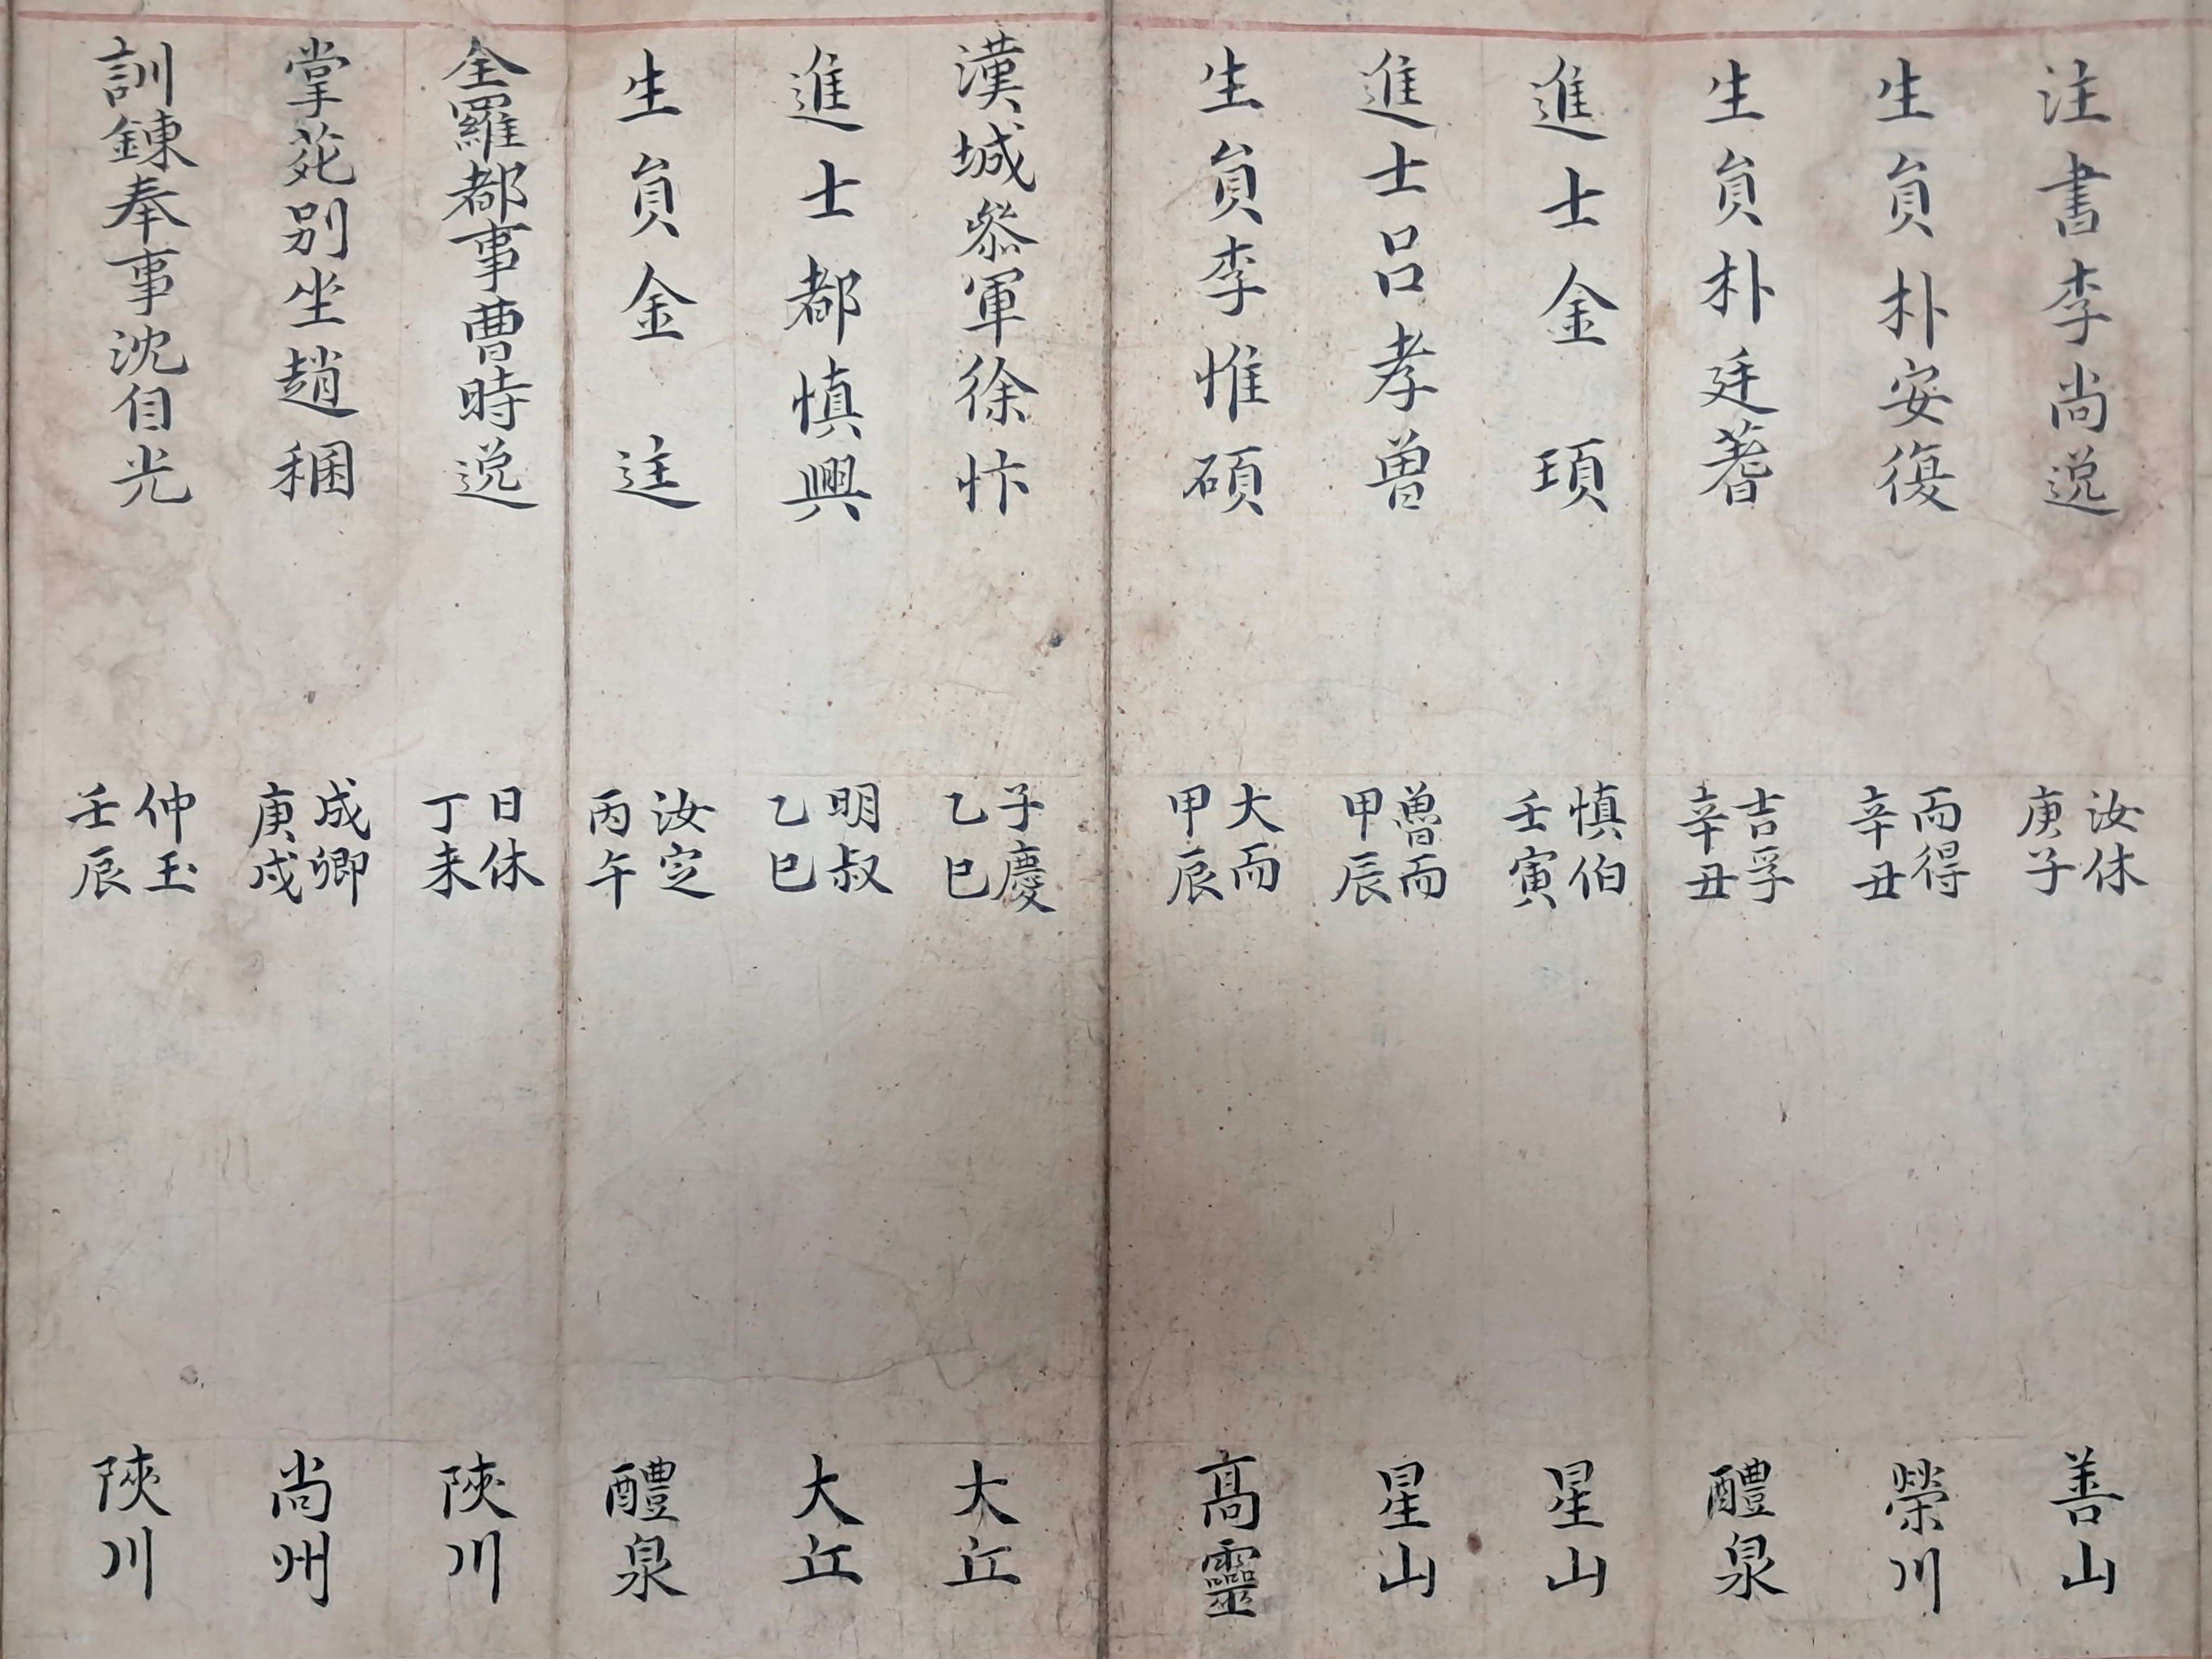 注書李尙说
汝休
庚子
善山
生員朴安復
而得
辛丑
榮川
生員朴廷蓍
吉孚
辛丑
醴泉
進士金頊
愼伯
壬寅
星山
進士呂孝曾
魯而
甲辰
星山
生員李惟碩
大而
甲辰
高靈
漢城叅軍徐忭
子慶
乙巳
大丘
進士都愼興
明叔
乙巳
大丘
生員金迬
汝定
丙午
醴泉
全羅都事曺時逸
日休
丁未
陜川
掌苑別坐趙稇
成卿
庚戌
尙州
訓鍊奉事沈自光
仲玉
壬辰
陜川